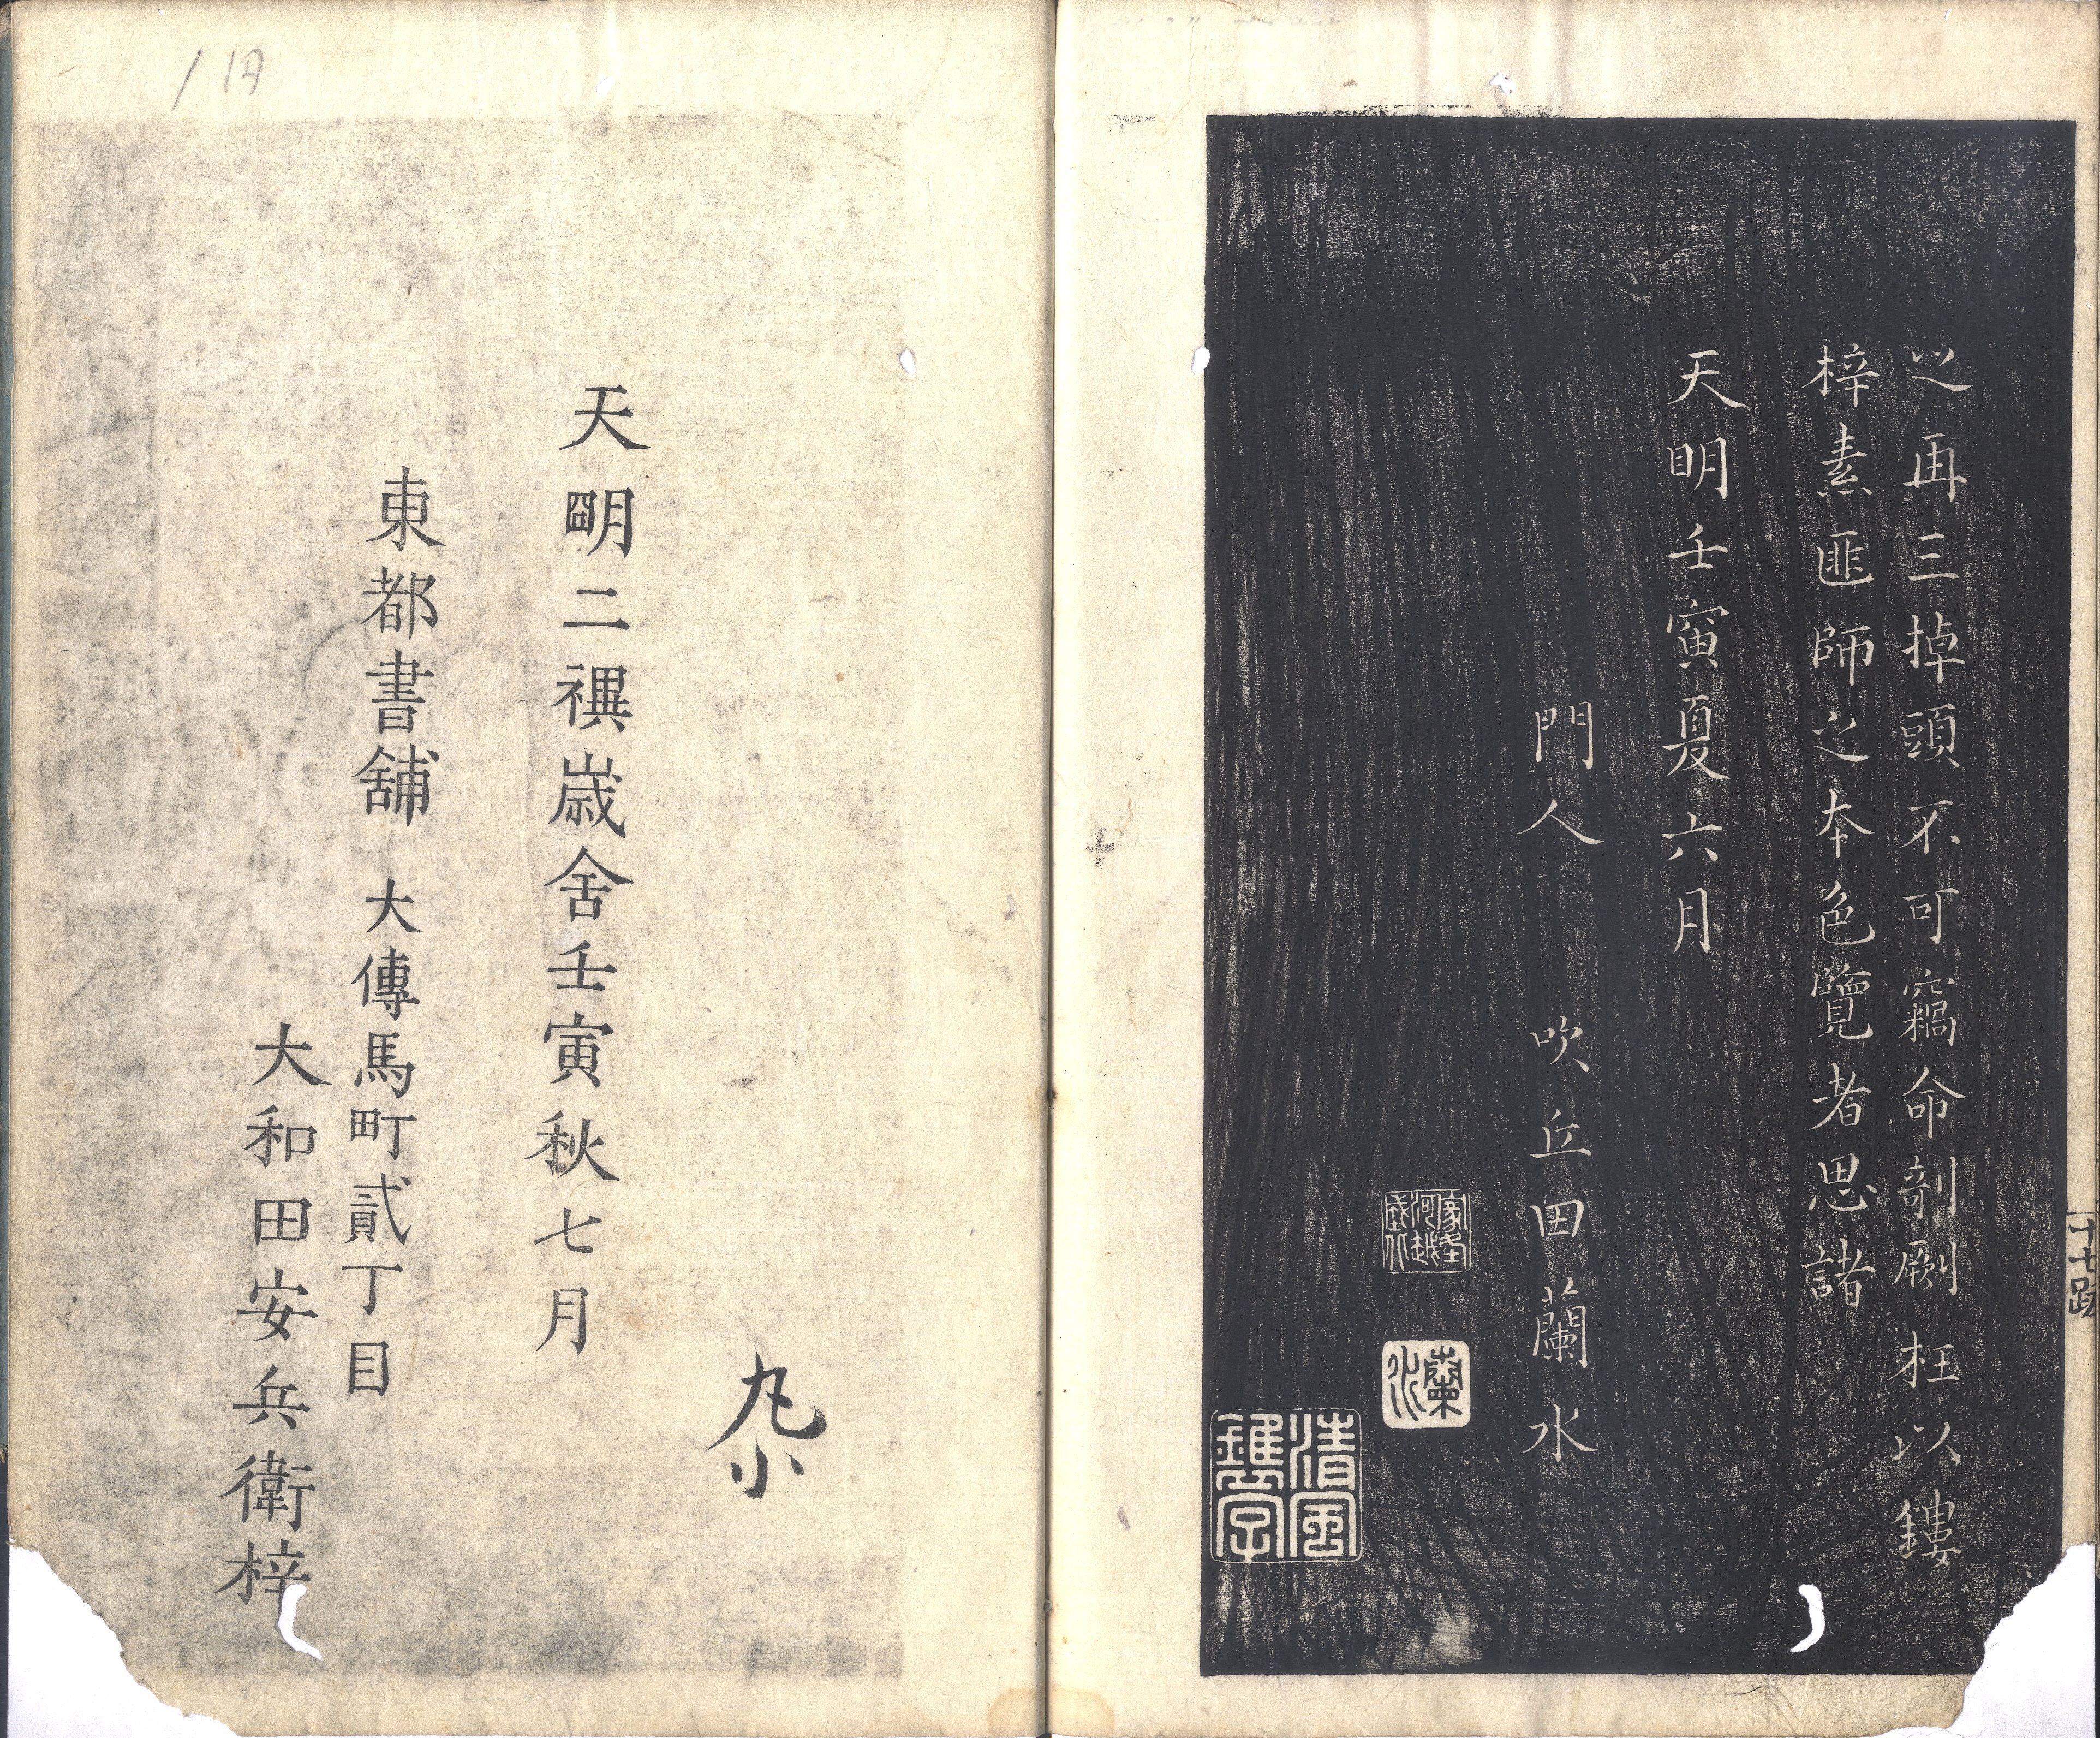 之再三掉頭不可竊命剞劂枉以鏤
梓素匪師之本色覽者思諸
天明壬寅夏六月
門人　吹丘田蘭水
蘭水
清風
鶴字
十七跋
天明二禩歳舍壬寅秋七月
東都書舗　大傳馬町貳丁目
大和田安兵衛梓